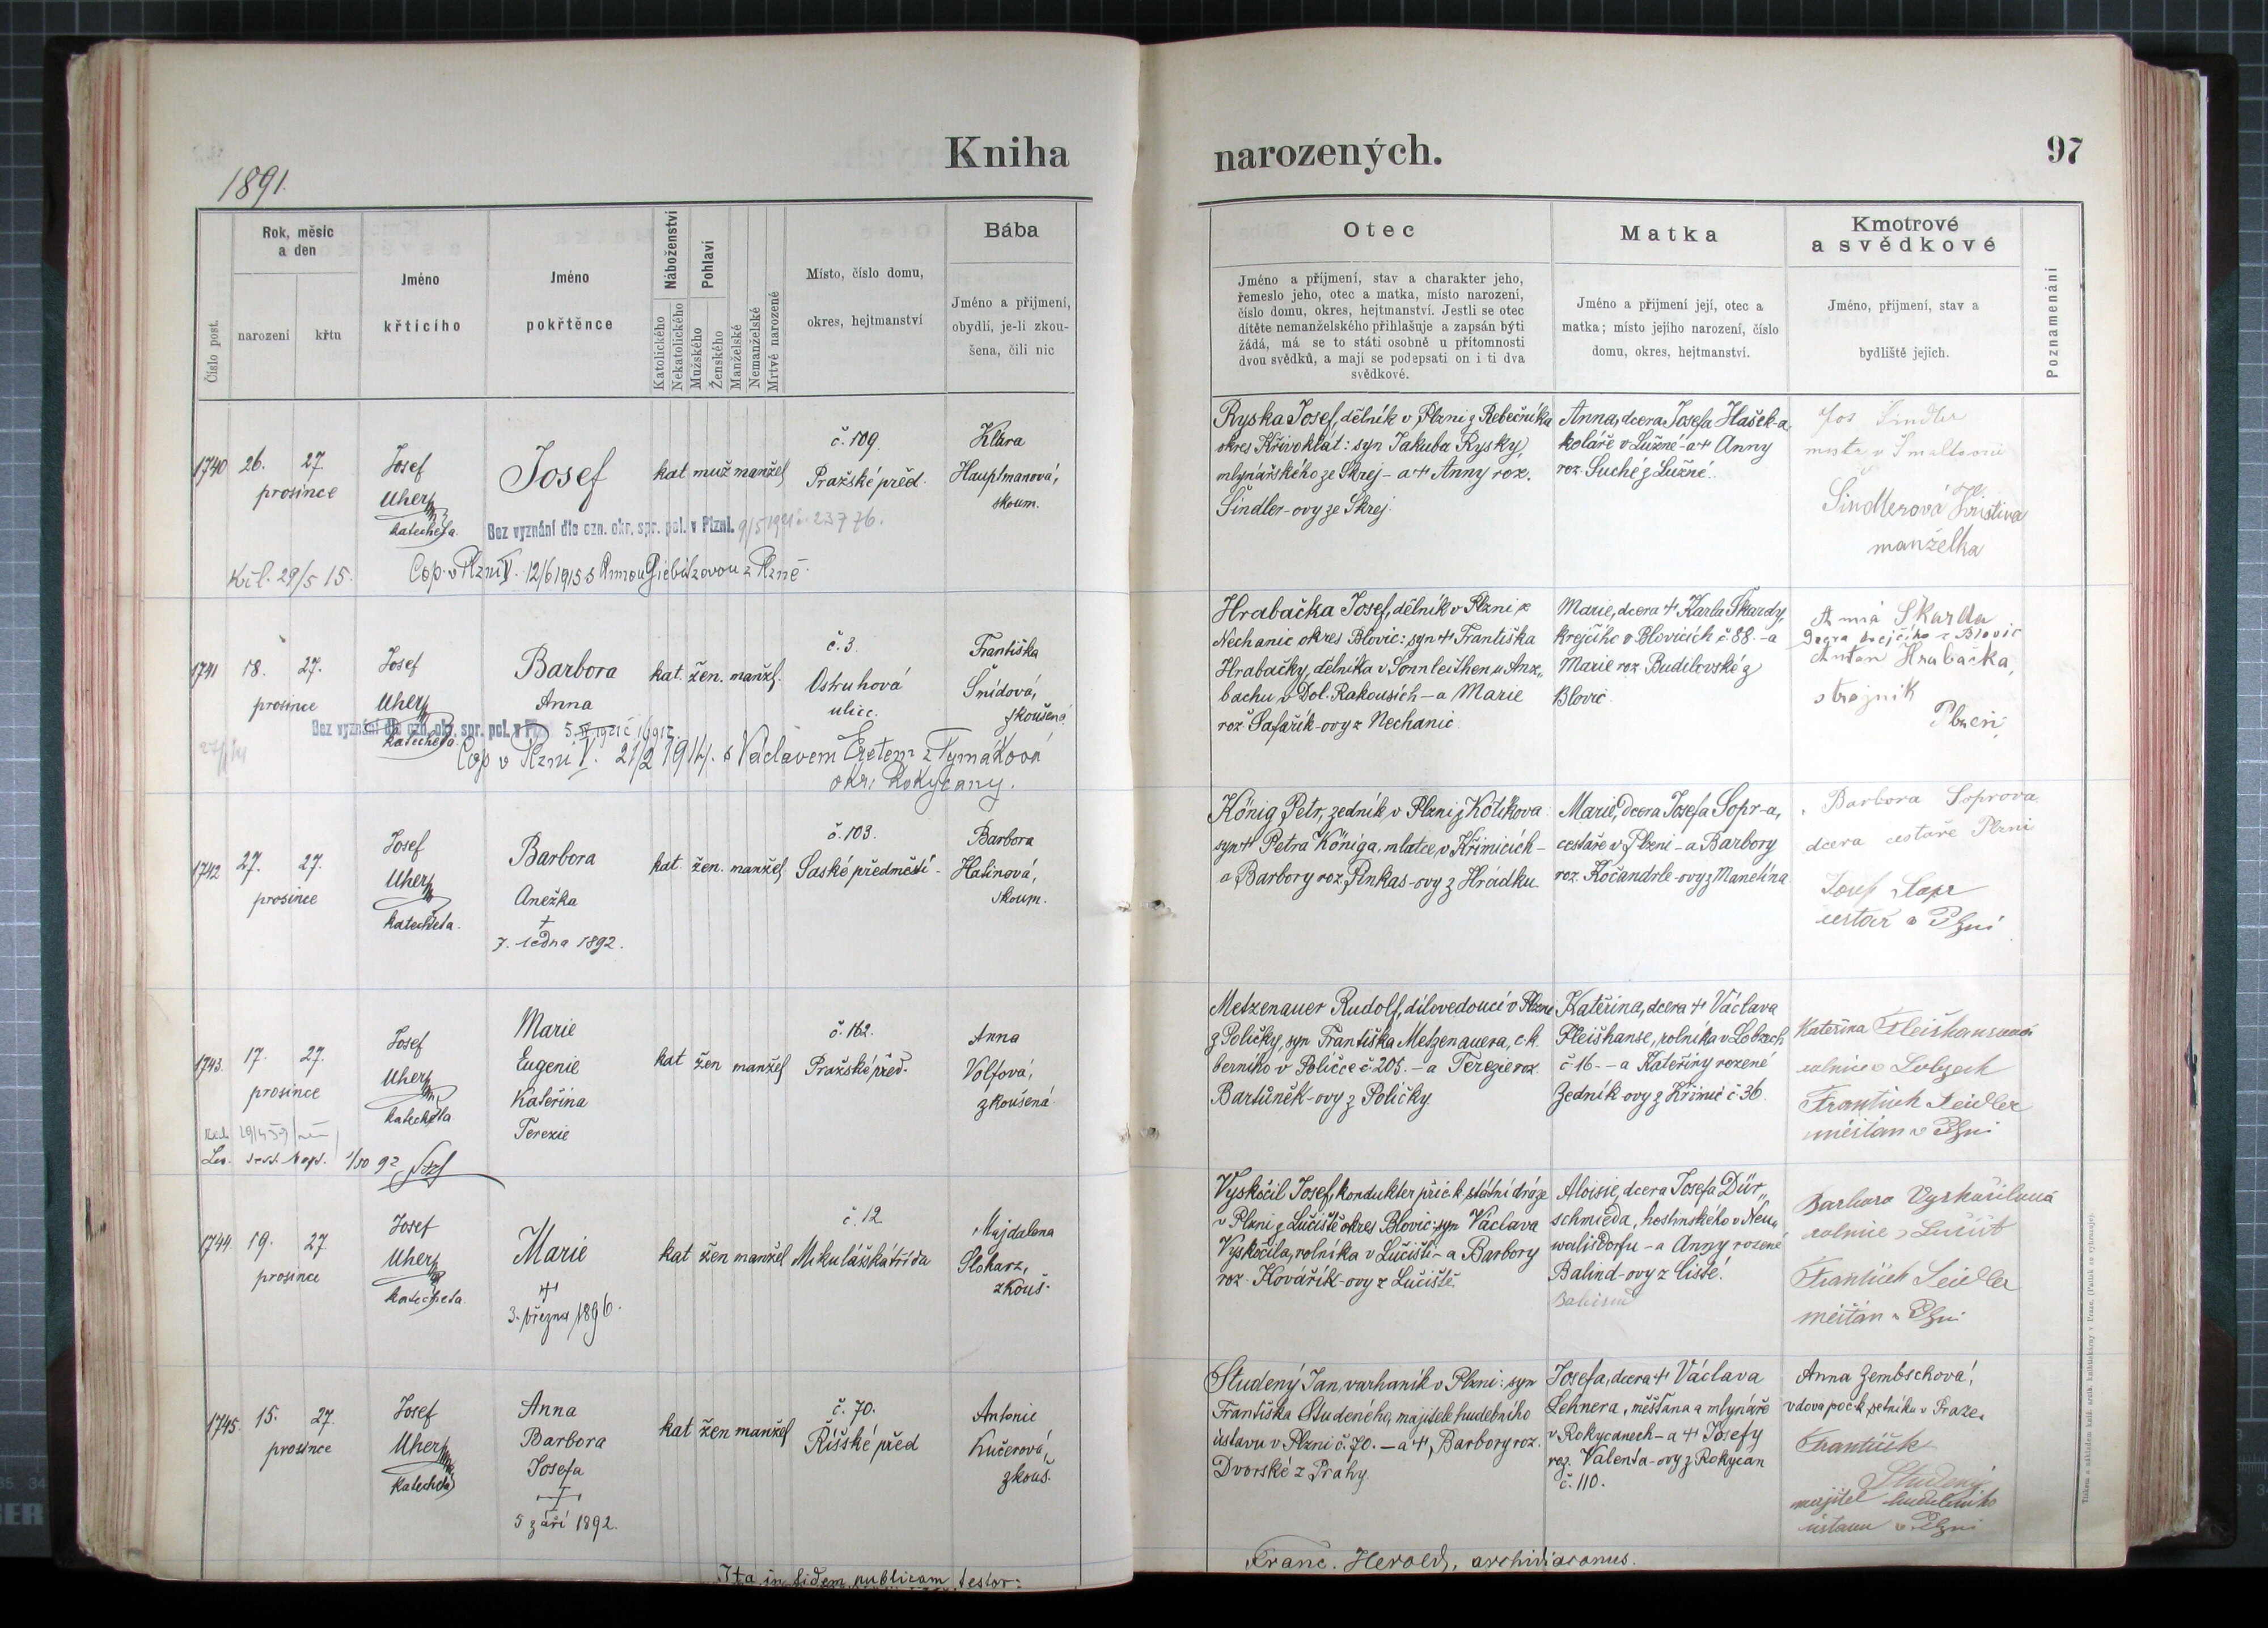 Kniha
narozených.
97
1891.
Rok, měsíc
a den
Číslo post.
narození
křtu
Jméno
křticího
Jméno
pokřtěnce
Náboženství
Katolického
Nekatolického
Pohlaví
Mužského
Ženského
Manželské
Nemanželské
Mrtvé narozené
Místo, číslo domu,
okres, hejtmanství
Bába
Jméno a přijmení,
obydlí, je-li zkou-
šena, čili nic
Otec
Jméno a přijmení, stav a charakter jeho,
řemeslo jeho, otec a matka, místo narození,
číslo domu, okres, hejtmanství. Jestli se otec
dítěte nemanželského přihlašuje a zapsán býti
žádá, má se to státi osobně u přítomnosti
dvou svědků, a mají se podepsati on i ti dva
svědkové.
Matka
Jméno a přijmení její, otec a
matka; místo jejího narození, číslo
domu, okres, hejtmanství.
Kmotrové
a svědkové
Jméno, přijmení, stav a
bydliště jejich.
Poznamenání
1740 26. 27.
prosince
Josef
Uher
katecheta
Josef
kat muž manžel
č. 109
Pražské před.
Klára
Hauptmanová,
zkoum.
Bez vyznání dle ozn. okr. spr. pol. v Plzni. 9/5 1921 č. 23776.
Křl. 29/5 15.
Cop. v Plzni 12/6 1915 s Annou z Plzně
Ryska Josef, dělník v Plzni z Rebečníka
okres Křivoklát: syn Jakuba Rysky,
mlynářského ze Skrej - a † Anny roz.
Šindler-ovy ze Skrej.
Anna, dcera Josefa Hašek-a
koláře v Lužné - a † Anny
roz. Suché z Lužné.
Jos Sindler
Šindlerová Kristina
manželka
1741 18. 27.
prosince
Josef
Uher
katecheta
Barbora
Anna
kat. žen. manžel.
č. 3.
Ostruhová
ulice.
Františka
Šnídová,
zkoušená
Bez vyznání dle ozn. okr. spr. pol. v Plz
Cop v Plzni 21/2 1914. s Václavem z Tymákova
okr. Rokycany.
Hrabačka Josef, dělník v Plzni z
Nechanic okres Blovic: syn † Františka
Hrabačky, dělníka v Sonnleithen u Anz„
bachu v Dol. Rakousích - a Marie
roz Šafařík-ovy z Nechanic
Marie, dcera † Karla Škardy,
krejčího v Blovicích č 88. - a
Marie roz Budilovské z
Blovic
Anna Skarda
Dcera krejčího z Blovic
Antan Hrabačka,
strojník
Plzeň.
1742 27. 27.
prosince
Josef
Uher
katecheta.
Barbora
Anežka
†
7. ledna 1892.
kat. žen. manžel
č. 103.
Saské předměstí
Barbora
Halinová,
zkoum.
König Petr, zedník v Plzni z Kotikova
syn † Petra Königa, mlatce v Křimicích -
a Barbory roz. Pinkas-ovy z Hrádku
Marie, dcera Josefa Sopr-a,
cestáře v Plzni - a Barbory
roz. Kočandrle-ovy z Manětína
Barbora Soprova
dcera cestáře Plzni
Josef Sopr
cestář v Plzni
1743. 17. 27.
prosince
Josef
Uher
katecheta
Marie
Eugenie
Kateřina
Terezie
kat žen manžel
č. 162.
Pražské před.
Anna
Volfová,
zkoušená
Metzenauer Rudolf, dílovedoucí v Plzni
z Poličky, syn Františka Metzenauera, c.k.
berního v Poličce č 205. - a Terezie roz.
Bartůněk-ovy z Poličky
Kateřina, dcera † Václava
Fleišhanse, rolníka v Lobzech
č 16 - - a Kateřiny rozené
Zedník-ovy z Křimic č 36.
Kateřina
rolnice v Lobzech
František Seidler
měštan v Plzni
1744. 19. 27
prosince
Josef
Uher
katecheta
Marie
†
3. března 1896.
kat žen manžel
č. 12
Mikulášská třída
Majdalena
Sloharz,
zkouš.
Vyskočil Josef, kondukter při c. k. státní dráze
v Plzni z Lučiště okres Blovic: syn Václava
Vyskočila, rolníka v Lučišti - a Barbory
roz. Kovářík-ovy z Lučiště
Aloisie, dcera Josefa Dür„
schmieda, hostinského v Neu„
walisdorfu - a Anny rozené
Balind-ovy z Lisse.
Barbara Vyskočilová
rolnice z Lučišt
František Seidler
měštan v Plzni
1745. 15. 27.
prosince
Josef
Uher
katecheta
Anna
Barbora
Josefa
†
5 září 1892.
kat žen manžel
č. 70.
Říšské před
Antonie
Kučerová,
zkouš.
Studený Jan, varhaník v Plzni: syn
Františka Studeného, majitele hudebního
ústavu v Plzni č. 70. - a † Barbory roz.
Dvorské z Prahy
Josefa, dcera † Václava
Lehnera, měšťana a mlynáře
v Rokycanech - a † Josefy
roz. Valenta-ovy z Rokycan
č. 110.
Anna Zembschová,
vdova po c k setníku v Praze.
František
Studený
majitel hudebního
ústavu v Plzni
Ita in fidem publicam testor:
Franc. Herold, archidiaconus.